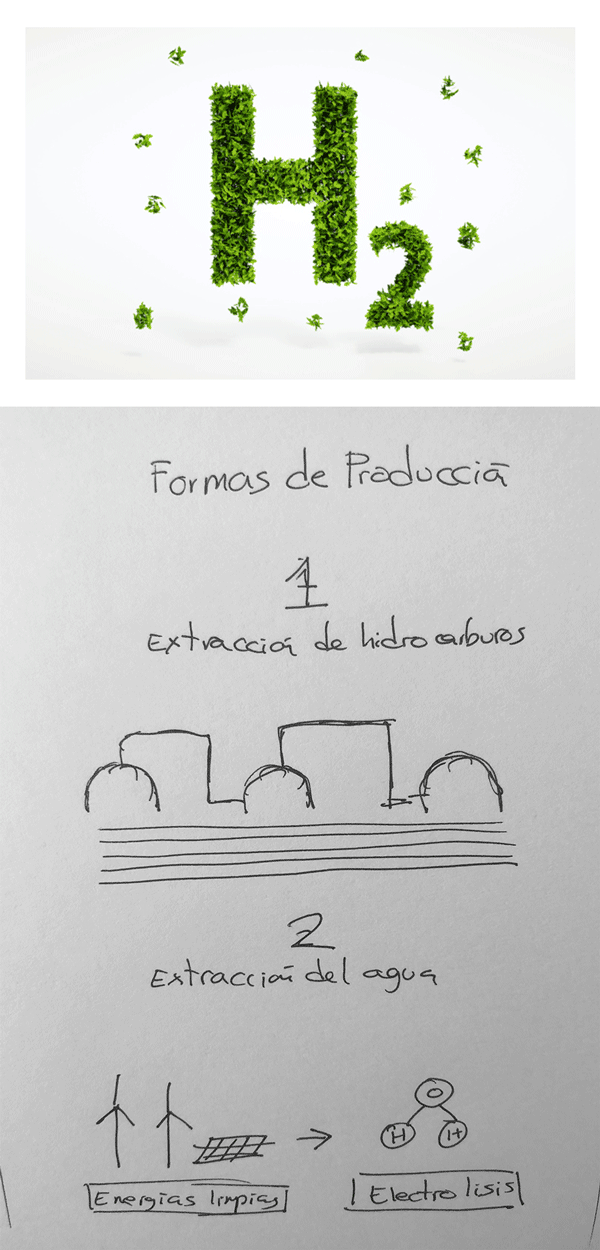 H2
Formas de Producción
1
Extracción de hidrocarburos
2
Extracción del agua
O
H H
Energías limpias
Electrolisis